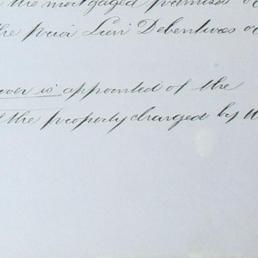 the mortgaged premises
the prior Lien Debentures
is appointed of the
the property charged by